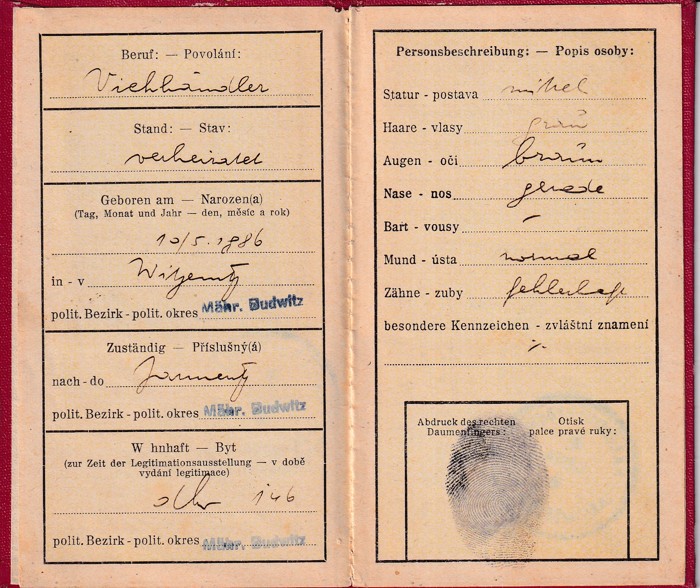 Beruf: — Povolání:
Viehhändler
Stand: — Stav:
verheiratet
Geboren am — Narozen(a)
(Tag, Monat und Jahr — den, měsíc a rok)
10/5. 1886
in - v
polit. Bezirk - polit. okres Mähr. Budwitz
Zuständig — Příslušný(á)
nach - do
polit. Bezirk - polit. okres Mähr. Budwitz
W hnhaft — Byt
(zur Zeit der Legitimationsausstellung — v době
vydání legitimace)
146
polit. Bezirk - polit. okres Mähr. Budwitz
Personsbeschreibung: — Popis osoby:
Statur - postava mittel
Haare - vlasy grau
Augen - oči braun
Nase - nos gerade
Bart - vousy -
Mund - ústa normal
Zähne - zuby fehlerhaft
besondere Kennzeichen - zvláštní znamení
Abdruck des rechten
Daumenfingers:
Otisk
palce pravé ruky: